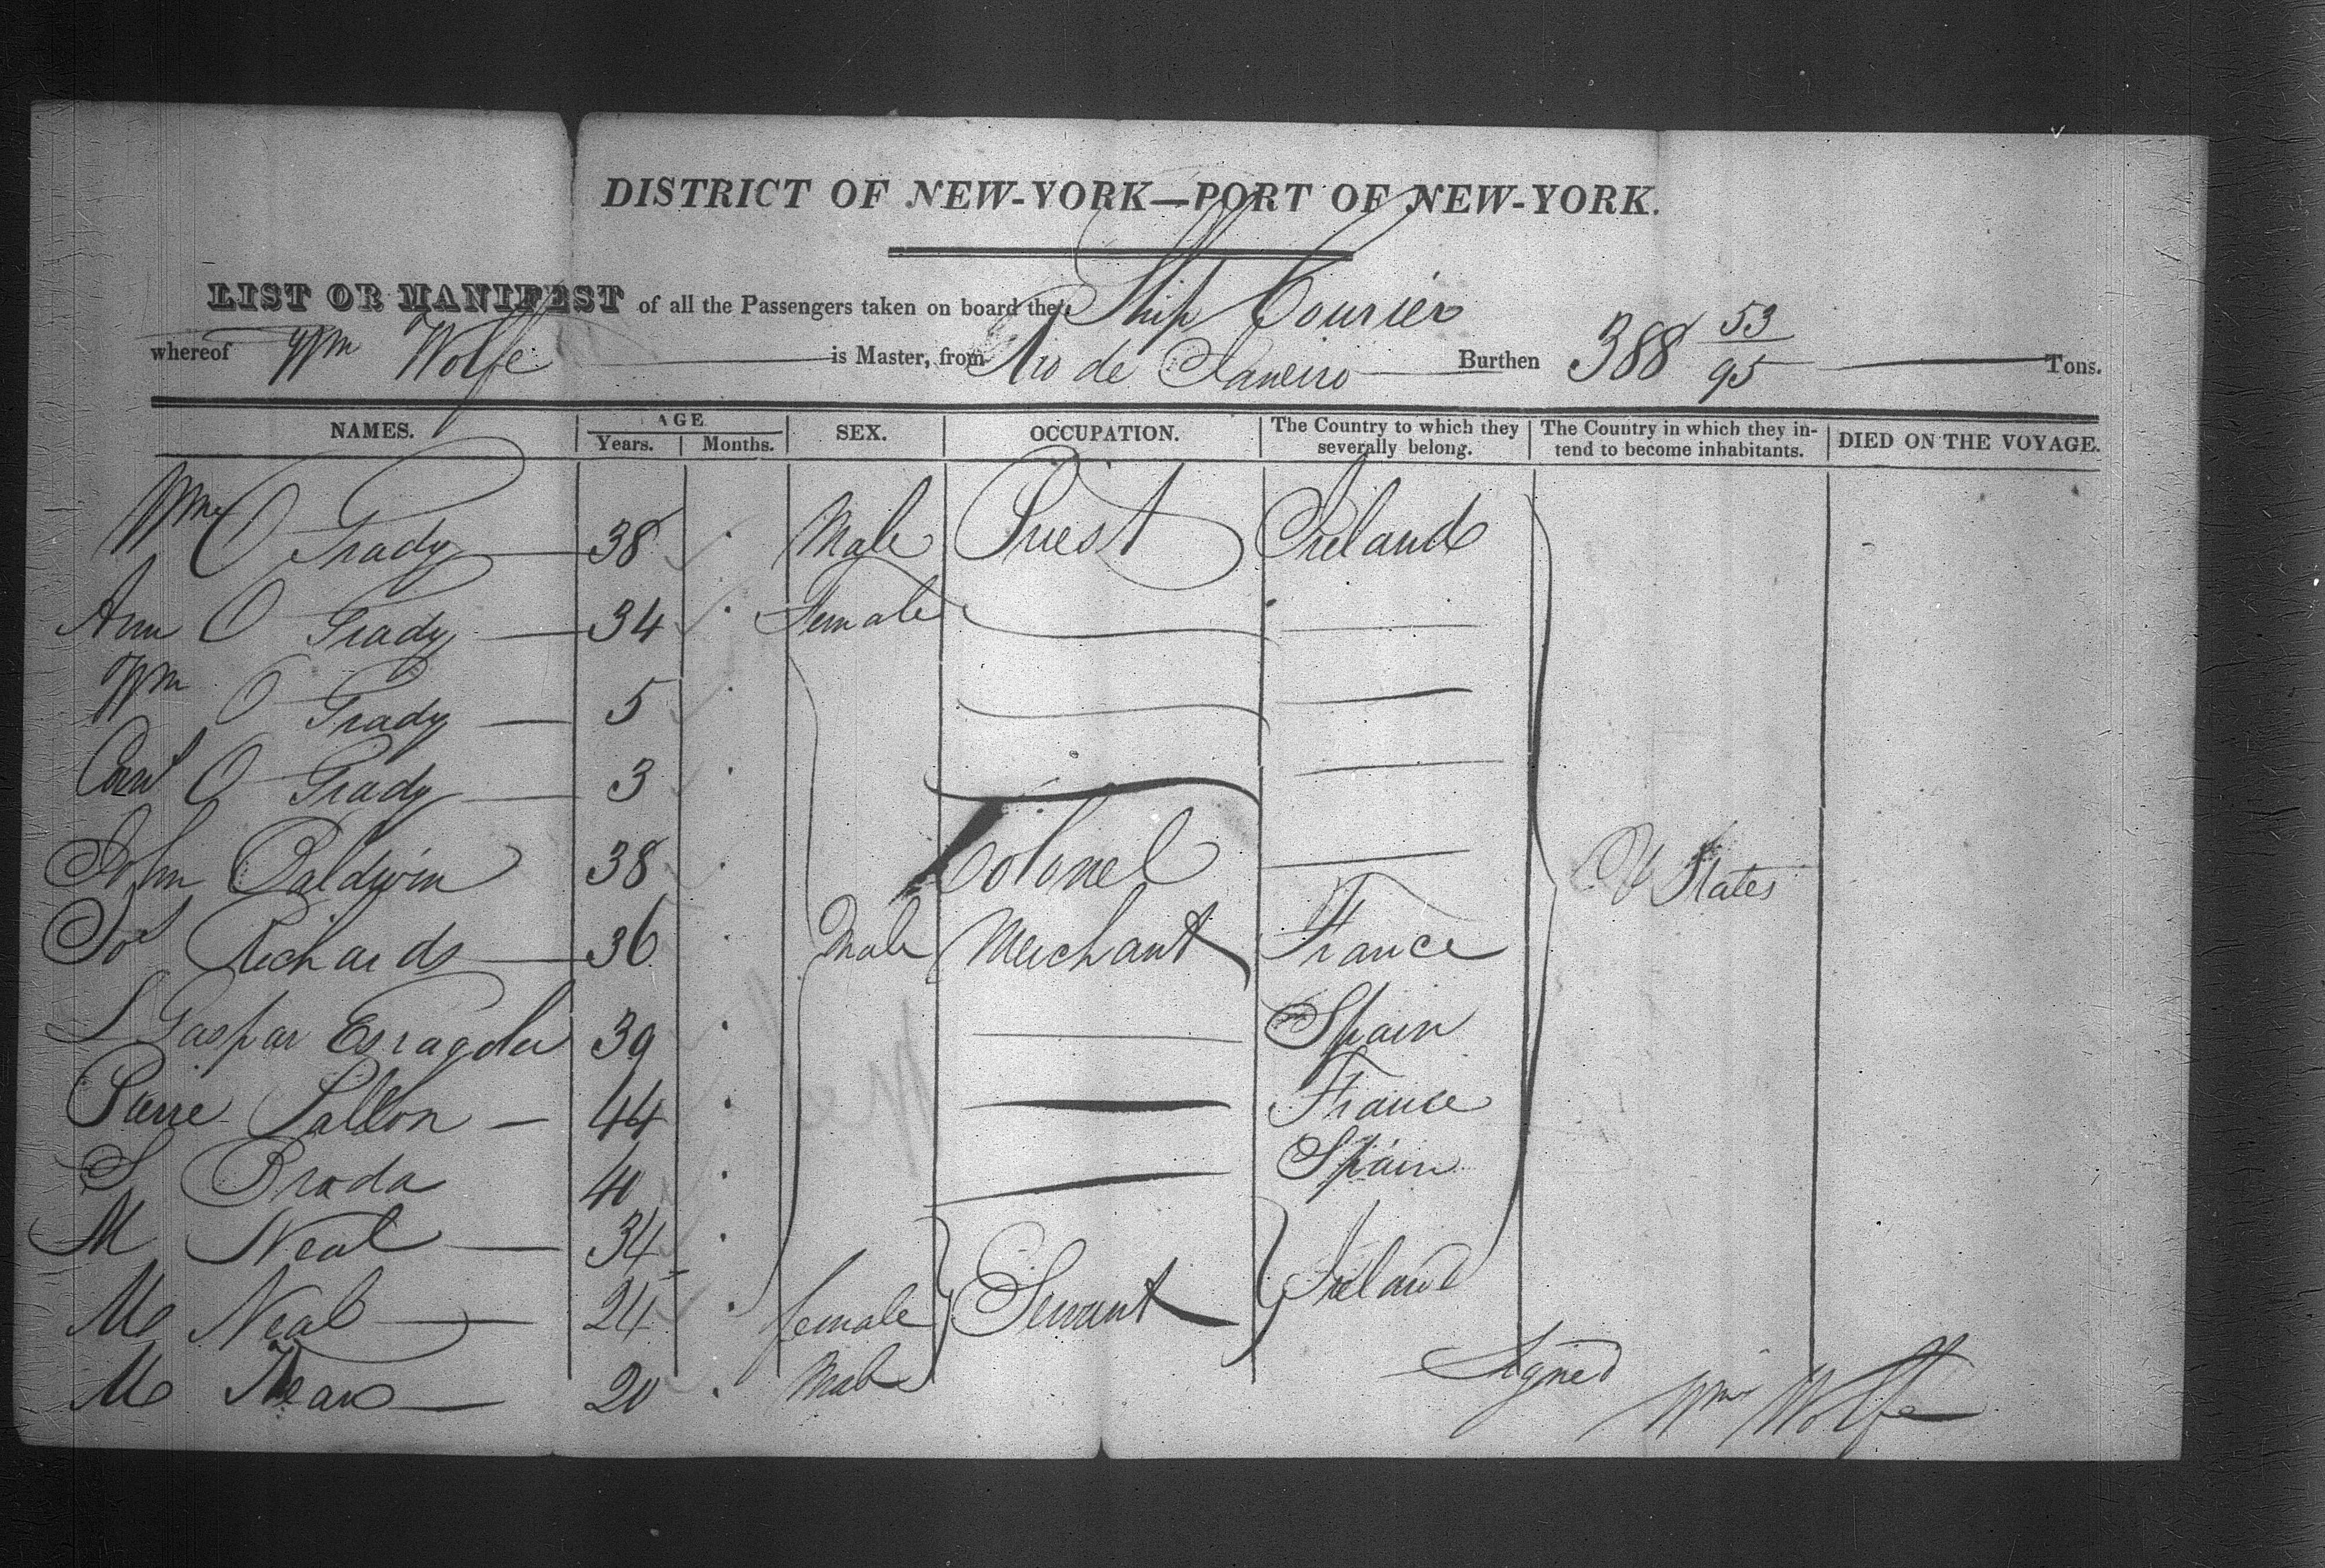 DISTRICT OF NEW-YORK—PORT OF NEW-YORK.
LIST OR MANIFEST of all the Passengers taken on board the Ship Courier
whereof Wm Wolfe is Master, from Rio de Janeiro Burthen 388 53/95 Tons.
NAMES. AGE Years. Months. SEX. OCCUPATION. The Country to which they severally belong. The Country in which they intend to become inhabitants. DIED ON THE VOYAGE.
Wm O Grady 38 Male Priest Ireland
Ann O Grady 34 Female
Wm O Grady 5
O Grady 3
John Baldwin 38 Colonel
Richards 36 Male Merchant France
U States
Gaspar 39 Spain
Pierre 44 France
S Prada 40 Spain
M Neal 34
M Neal 24 female Servant Ireland
M 20 Male
Signed Wm Wolfe